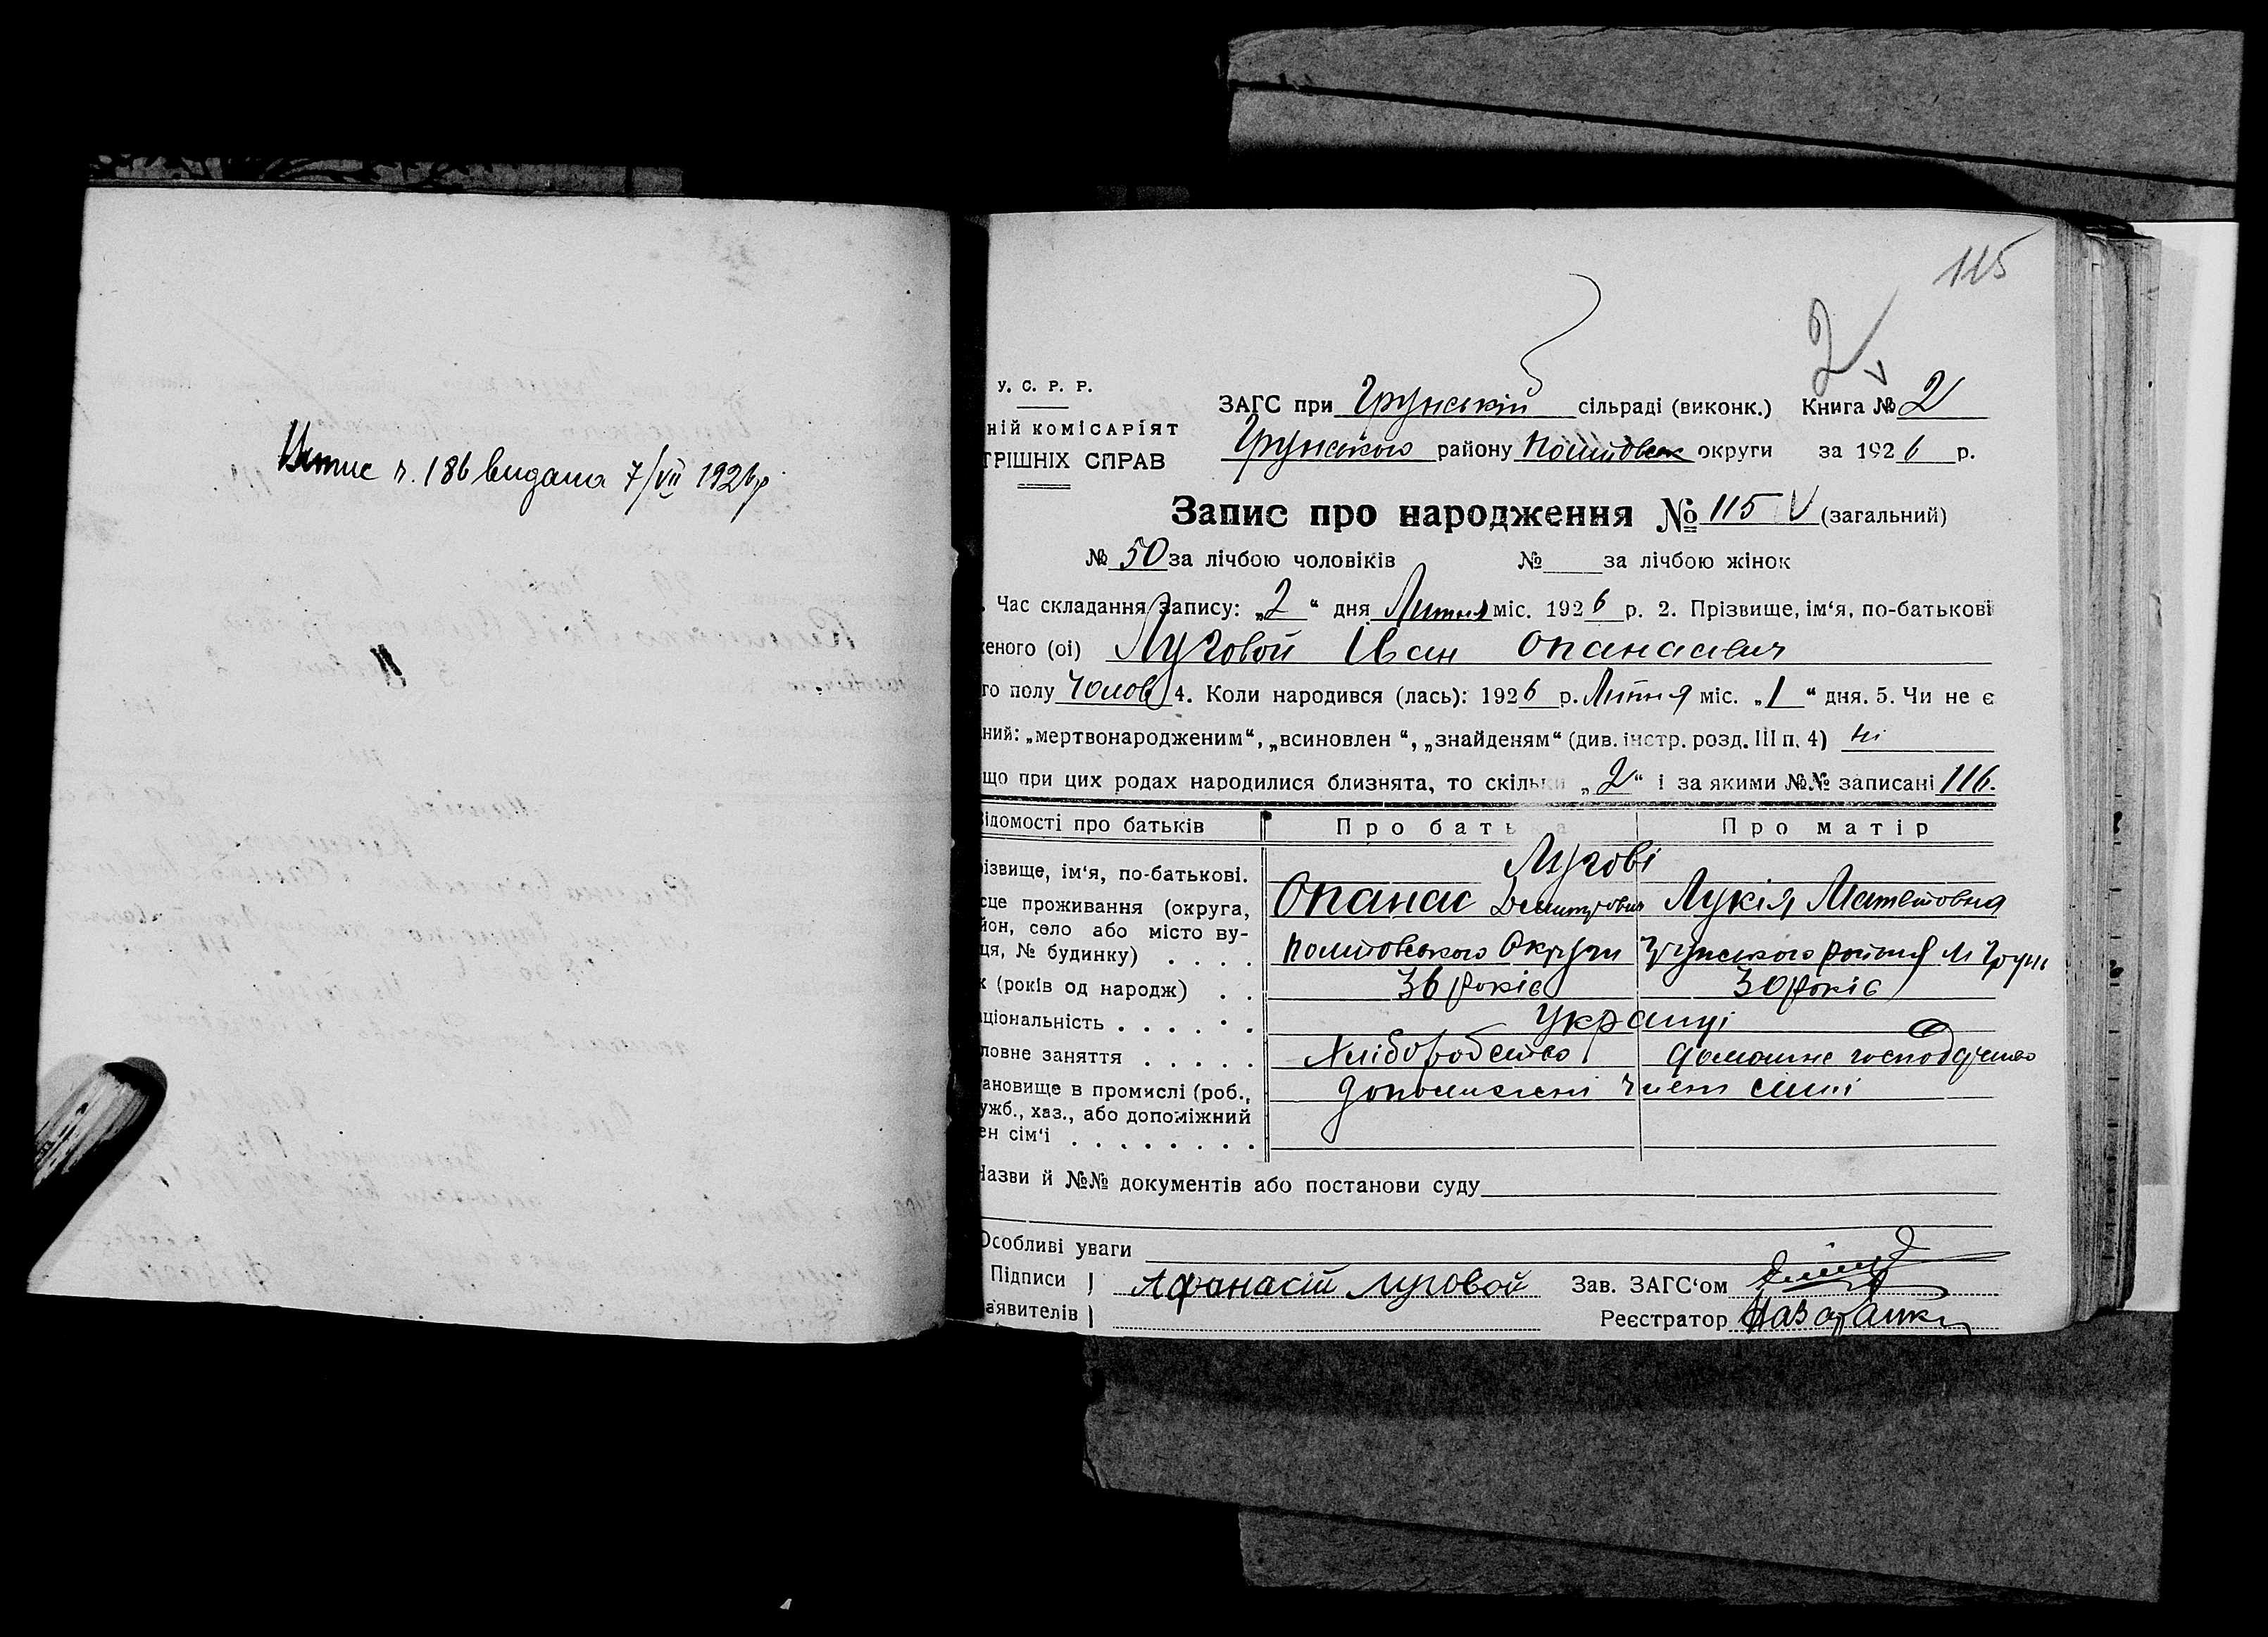 Витис н. 186 видана 7/VII 1926р
115
2
У. С. Р. Р.
НІЙ КОМІСАРІЯТ
ТРІШНІХ СПРАВ
ЗАГС при Грунській сільраді (виконк.) Книга № 2
Грунського району округи за 1926 р.
Запис про народження № 115 V (загальний)
№ 50 за лічбою чоловіків № за лічбою жінок
. Час складання запису: „2“ дня Липня міс. 1926 р. 2. Прізвище, ім‘я, по-батькові
еного (ої) Луговой Іван Опанасович
го полу Чолов 4. Коли народився (лась): 1926 р. Липня міс. „1“ дня. 5. Чи не є
ний: „мертвонародженим“, „всиновлен “, „знайденям“ (див. інстр. розд. III п. 4) ні
що при цих родах народилися близнята, то скільки „2“ і за якими №№ записані 116.
ідомості про батьків Про батька Про матір
Лугові
ізвище, ім‘я, по-батькові.
Опанас Дмитрович Лукія Матвіовна
сце проживання (округа,
йон, село або місто ву-
ця, № будинку) . . . .
Округи Грунського району м Грунь
к (років од народж) . . 36 років 30 років
аціональність . . . . . . Українці
ловне заняття . . . . . Хліборобство домашне господарство
ановище в промислі (роб.,
ужб., хаз., або допоміжний
ен сім‘ї . . . . . . . .
член сімї
Назви й №№ документів або постанови суду
Особливі уваги
Підписи
аявителів
Афанасій Луговой Зав. ЗАГС‘ом
Реєстратор